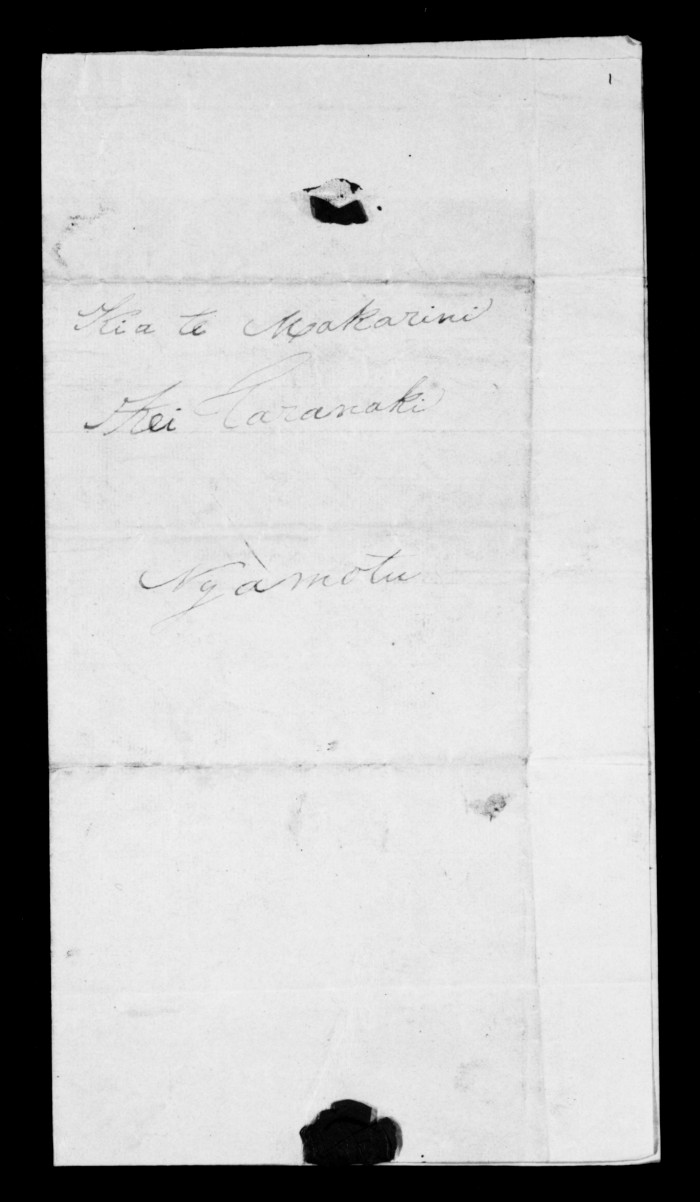 Kia te Makarini
Kei Taranaki
Ngàmotu